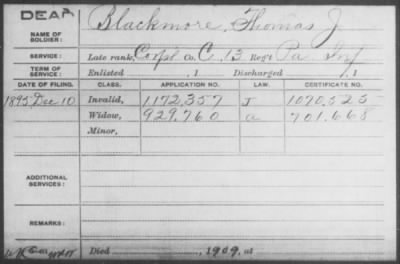 DEAD
NAME OF SOLDIER: Blackmore, Thomas J
SERVICE: Late rank, Corpl Co. C, 13 Reg't Pa Inf
TERM OF SERVICE: Enlisted , 1 Discharged , 1
DATE OF FILING. CLASS. APPLICATION NO. LAW. CERTIFICATE NO.
1895 Dec 10 Invalid, 1172.357 J 1090.525
Widow, 929.760 a 701.668
Minor,
ADDITIONAL SERVICES:
REMARKS:
Died , 1909, at